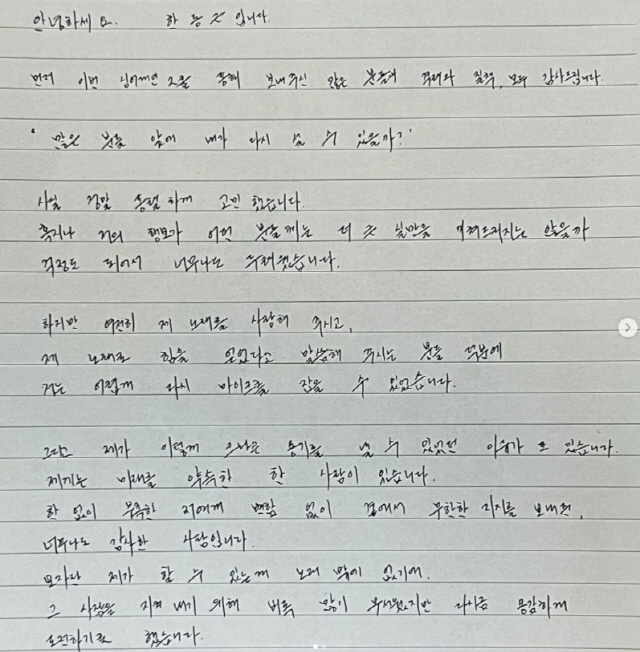 안녕하세요. 한동근입니다.
먼저 이번 싱어게인 2를 통해 보내주신 많은 분들의 격려와 질책, 모두 감사드립니다.
'많은 분들 앞에 내가 다시 설 수 있을까?'
사실 정말 하게 고민 했습니다.
혹시나 저의 행보가 어떤 분들께는 더 큰 실망을 안겨드리지는 않을까
걱정도 되어서 너무나도 두려웠습니다.
하지만 여전히 제 노래를 사랑해 주시고,
제 노래로 힘을 얻었다고 말씀해 주시는 분들 덕분에
저는 어렵게 다시 마이크를 잡을 수 있었습니다.
그리고 제가 이렇게 용기를 낼 수 있었던 이유가 또 있습니다.
제게는 미래를 약속한 한 사람이 있습니다.
한 없이 부족한 저에게 변함 없이 곁에서 무한한 지지를 보내준,
너무나도 감사한 사람입니다.
모자란 제가 할 수 있는게 노래 밖에 없기에,
그 사람을 지켜 내기 위해 비록 많이 무서웠지만 다시금 용감하게
도전하기로 했습니다.